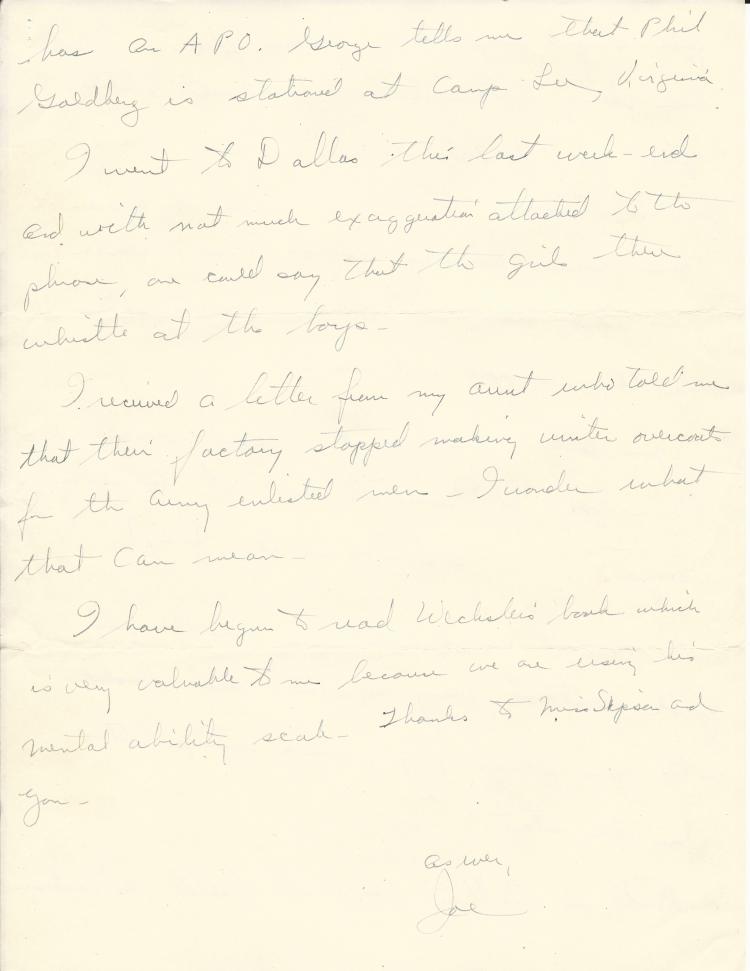 has an A P O. George tells me that Phil
Goldberg is stationed at Camp Lee, Virginia.
I went to Dallas this last week-end
and with not much exaggeration attached to the
phrase, one could say that the girls there
whistle at the boys-
I received a letter from my aunt who told me
that their factory stopped making winter overcoats
for the Army enlisted men - I wonder what
that can mean-
I have begun to read Wechsler's book which
is very valuable to me because we are using his
mental ability scale- Thanks to Miss and
you-
as ever,
Joe